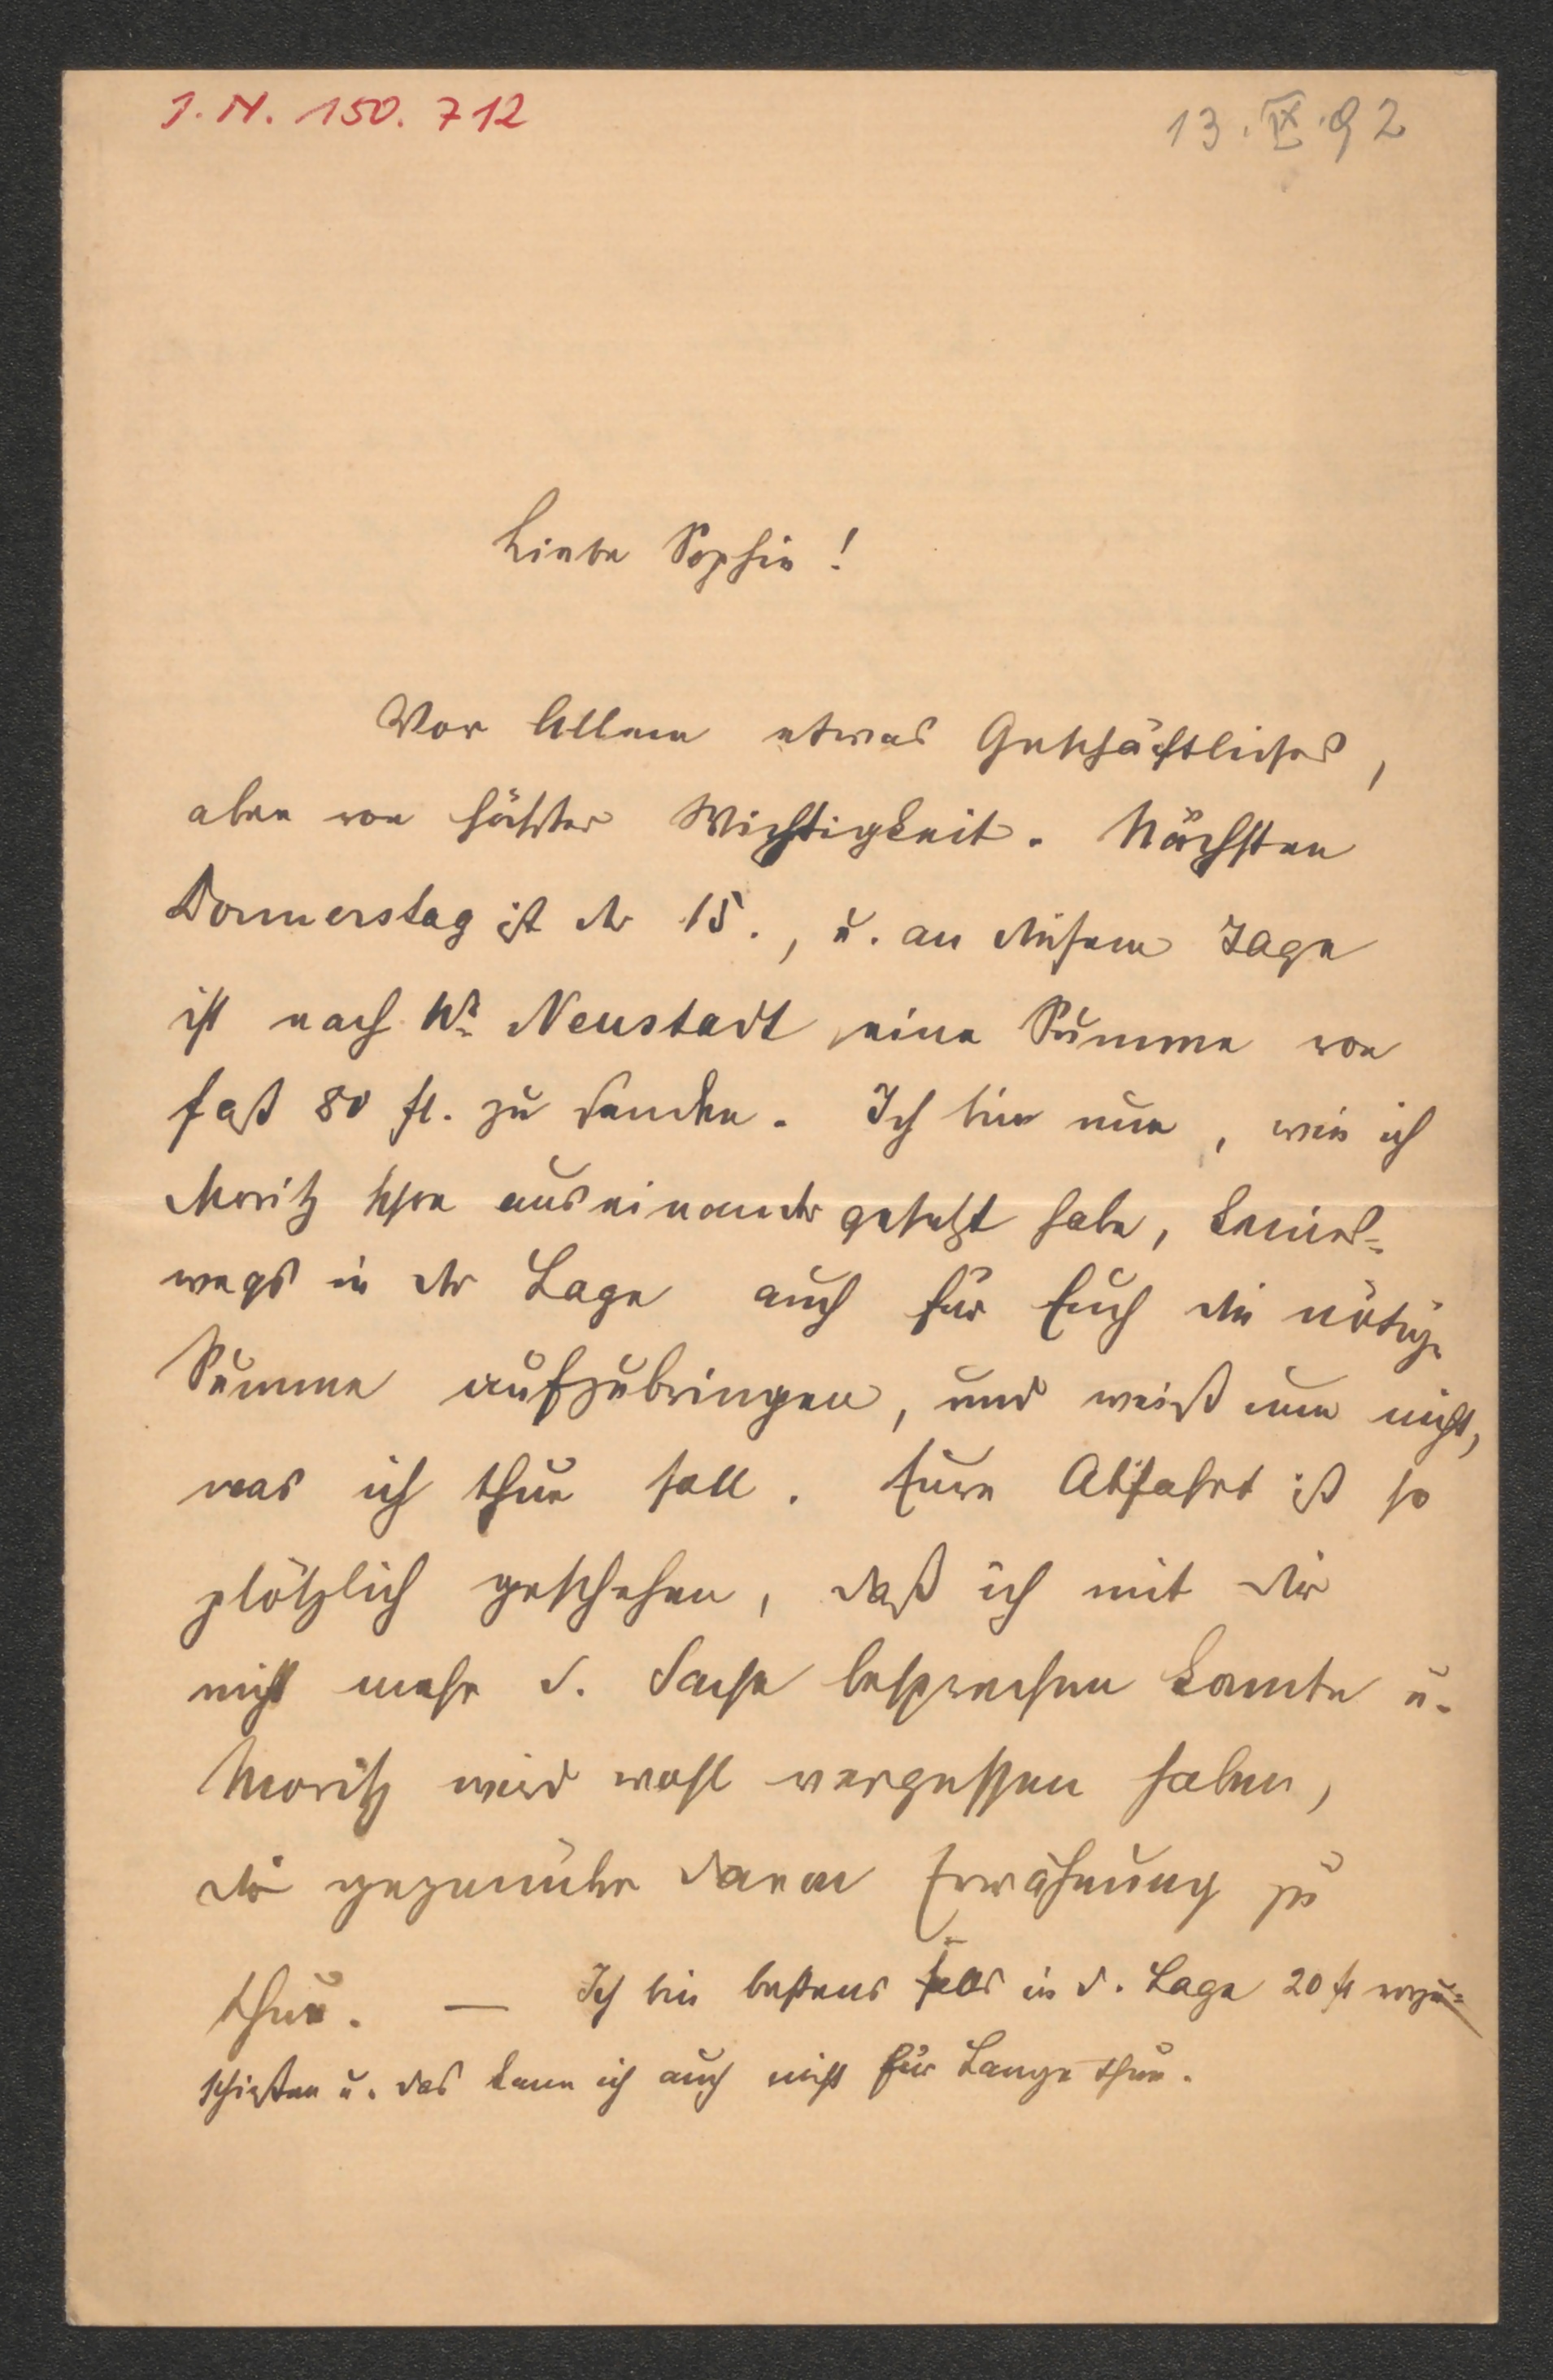 J. N. 150.712
13.IX.92
Liebe Sophie!
Vor Allem etwas Geschäftliches,
aber von höchster Wichtigkeit. Nächsten
Donnerstag ist der 15., u. an diesem Tage
ist nach Wr Neustadt eine Summe von
fast 80 fl. zu senden. Ich bin nun, wie ich
Moritz schon auseinandergesetzt habe, keines=
wegs in der Lage auch für Euch die nötige
Summe aufzubringen, und weiß nun nicht,
was ich thun soll. Eure Abfahrt ist so
plötzlich geschehen, daß ich mit dir
nicht mehr d. Sache besprechen konnte u.
Moritz wird wohl vergessen haben,
dir gegenüber davon Erwähnung zu
thun. — Ich bin bestens falls in d. Lage 20 fl vorzu=
schießen u. das kann ich auch nicht für Lange thun.